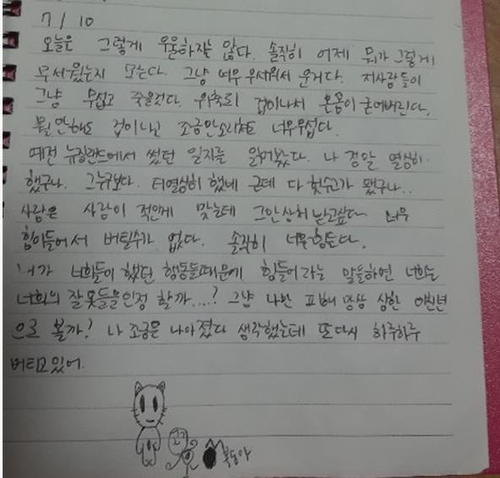 7/10
오늘은 그렇게 우울하지는 않다. 솔직히 어제 뭐가 그렇게
무서웠는지 모른다. 그냥 너무 무서워서 운거다. 저사람들이
그냥 무섭고 죽을것다. 위축되 겁이나서 온몸이 굳어버린다.
뭘 안해도 겁이나고 조금만소리쳐도 너무무섭다.
예전 뉴질랜드에서 썼던 일지를 읽어봤다. 나 정말 열심히
했구나. 그누구보다. 더열심히 했네 근데 다 헛수고가 됐구나..
사람은 사람이 적은게 맞는데 그만 살고싶다 너무
힘이들어서 버틸수가 없다. 솔직히 너무힘든다.
내가 너희들이 했던 행동들때문에 힘들어 라는 말들하면 너희는
너희의 잘못들을인정 할까....? 그냥 나만 피해망상 상한 미친년
으로 볼까? 나 조금은 나아졌다 생각했는데 또다시 하루하루
버티고있어.